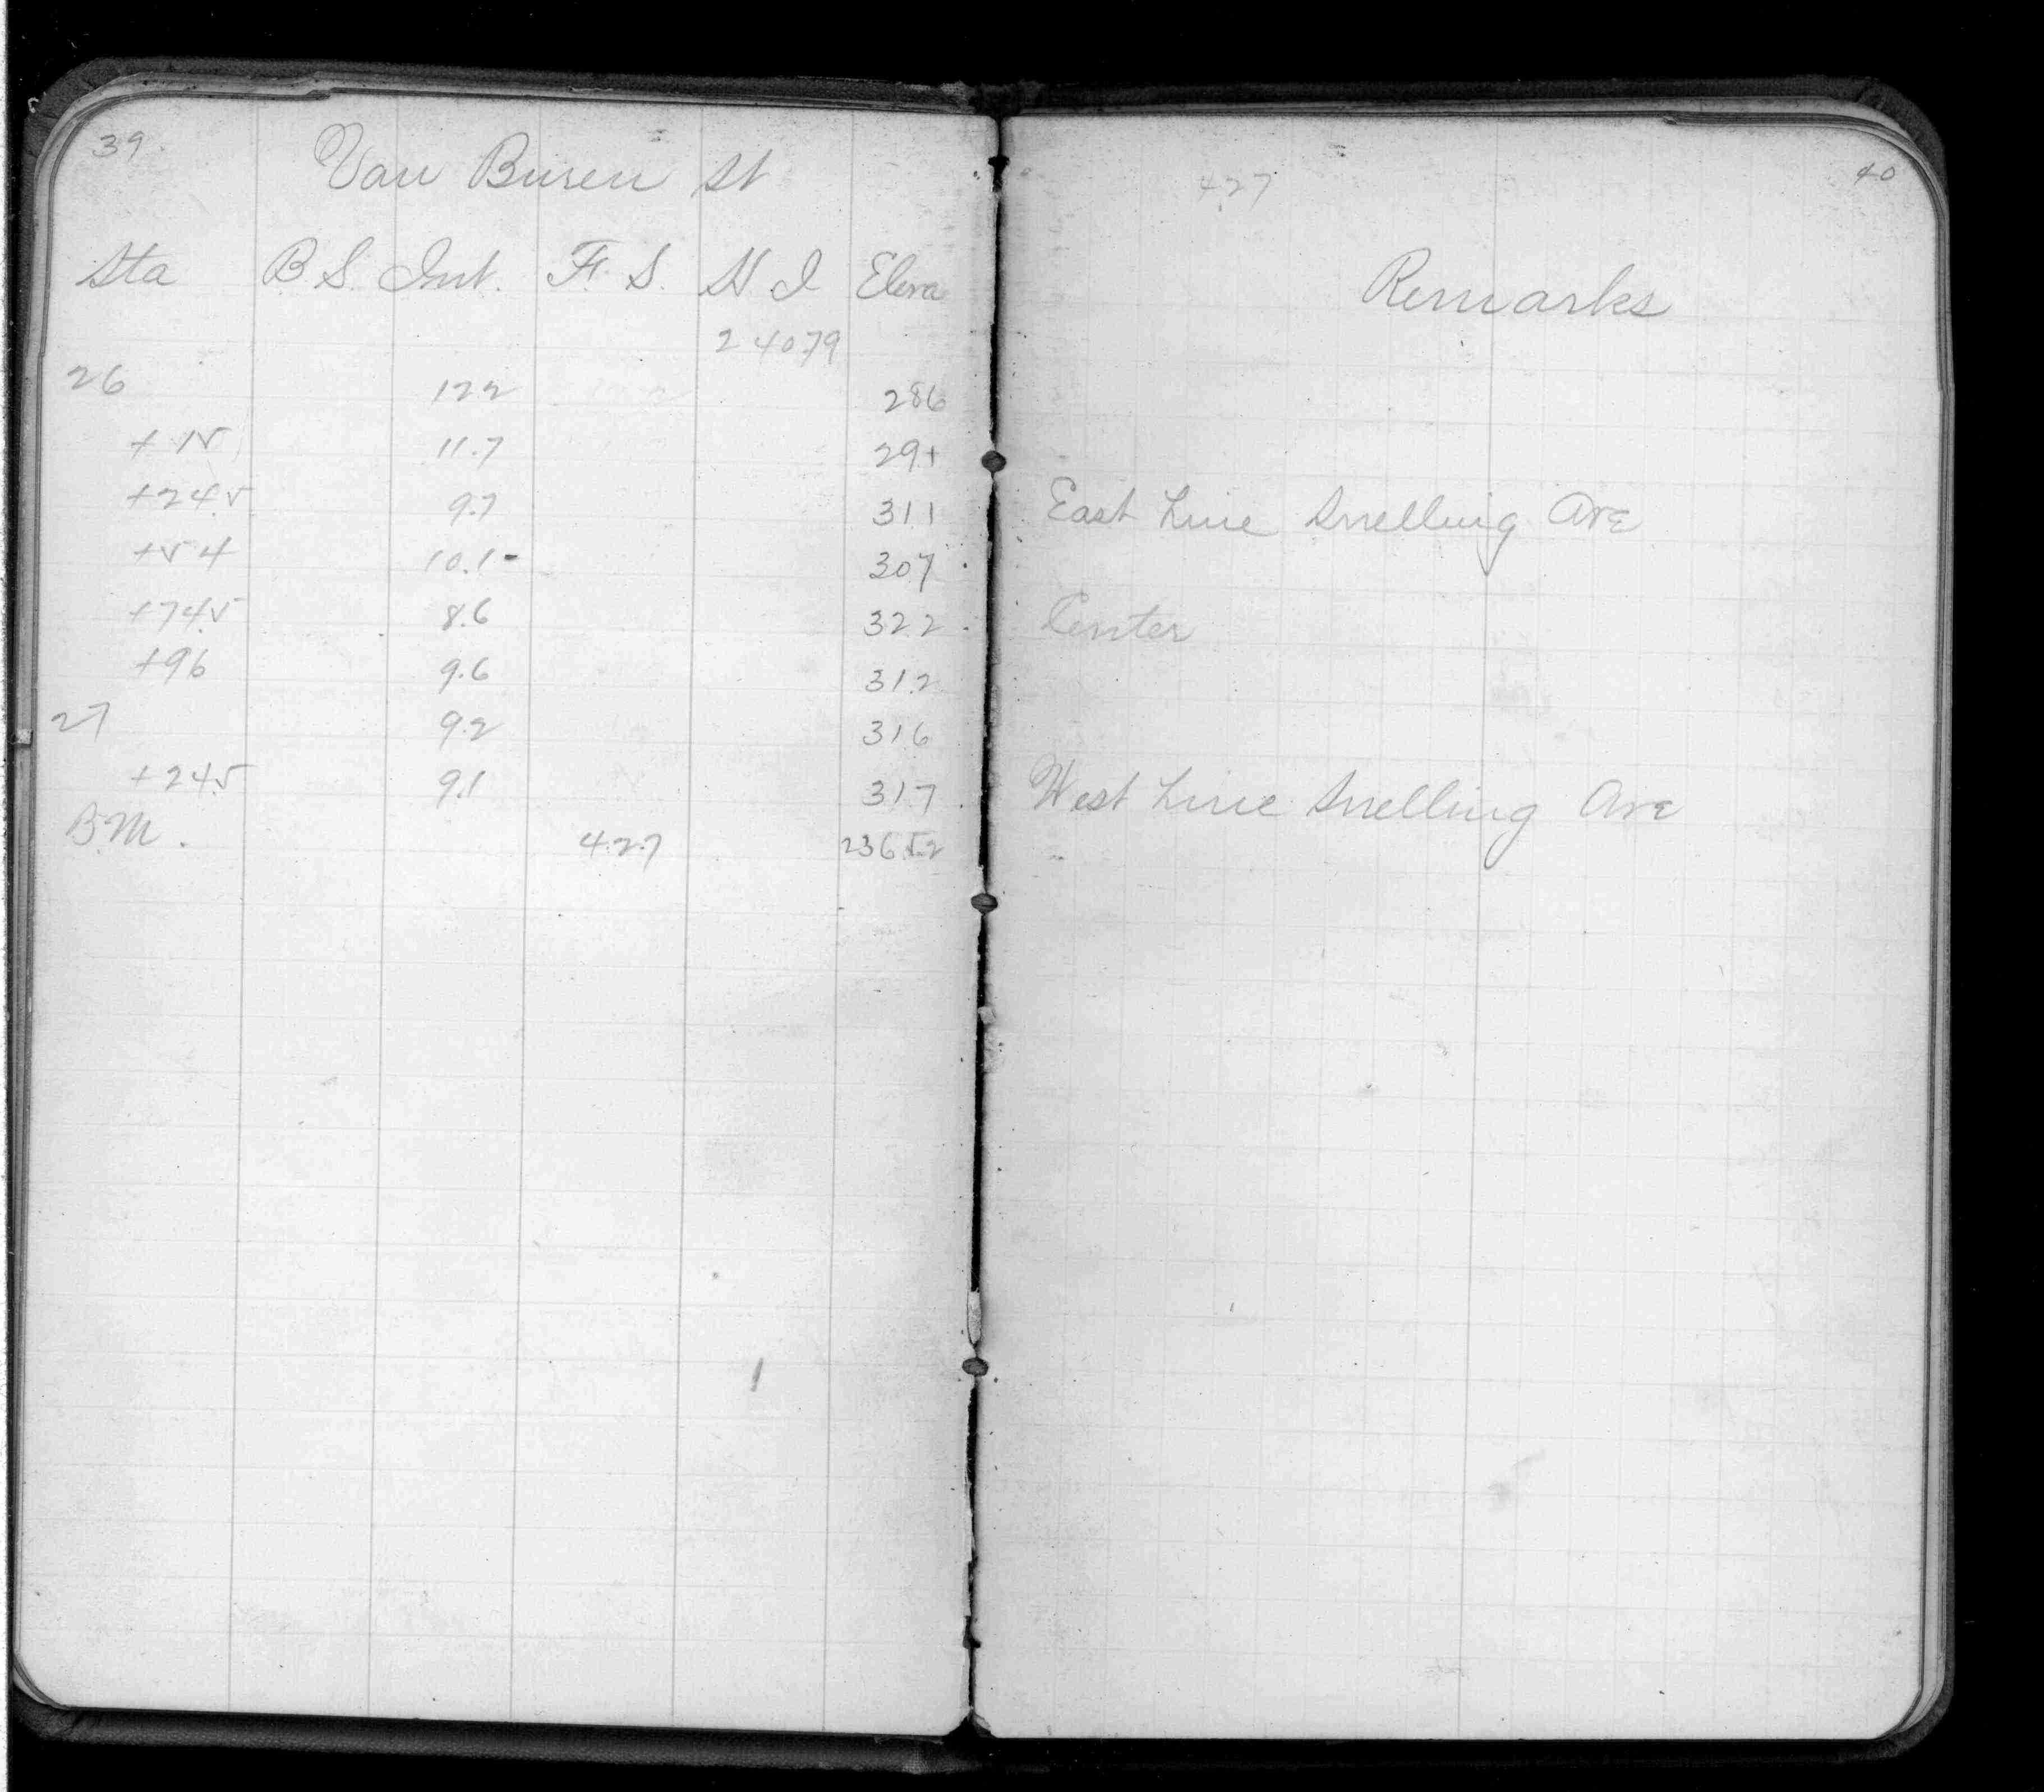 39.
Van Buren St
Sta B S. Int. F. S. H I Eleva
240.79
26 12.2 28.6
+15 11.7 29.1
+24.5 9.7 31.1
+54 10.1 30.7
+74.5 8.6 32.2
+96 9.6 31.2
27 9.2 31.6
+24.5 9.1 31.7
B.M. 4.27 236.52
40
427
Remarks
East Line Snelling Ave
Center
West Line Snelling Ave